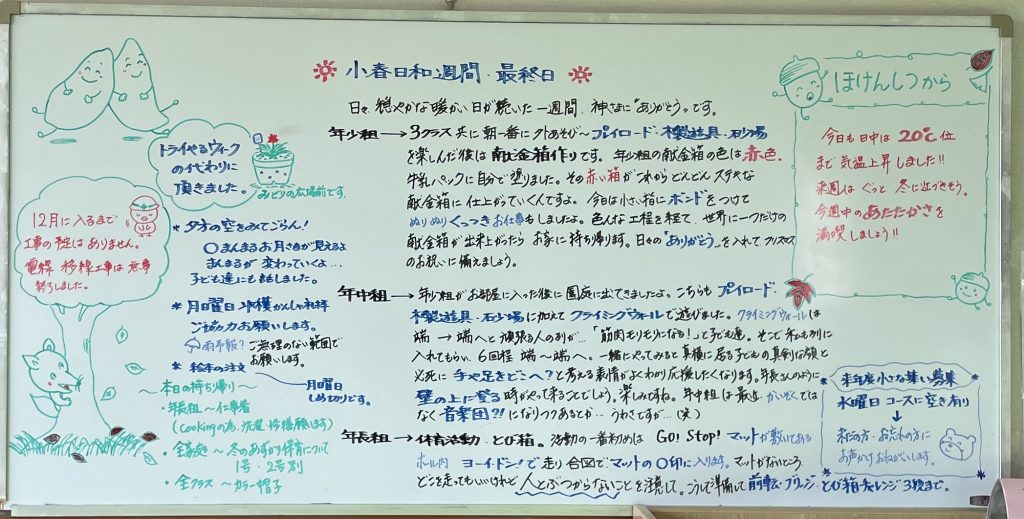 小春日和週間・最終日
日々穏やかな暖かい日が続いた一週間、神さまに"ありがとう"です。
年少組→3クラス共に朝一番に外あそび～プイロード・木製遊具・砂場
を楽しんだ後は献金箱作りです。年少組の献金箱の色は赤色。
牛乳パックに自分で塗りました。その赤い箱がこれからどんどんステキな
献金箱に仕上がっていくんですよ。今日は小さい箱にボンドをつけて
ぬりぬりくっつきお仕事もしましたよ。色んな工程を経て、世界に一つだけの
献金箱が出来上がったらお家に持ち帰ります。日々の"ありがとう"を入れてクリスマス
のお祝いに備えましょう。
年中組→年少組がお部屋に入った後に園庭に出てきましたよ。こちらもプイロード・
木製遊具・砂場に加えてクライミングウォールで遊びました。クライミングウォールは
端→端へと頑張る人の列が…「筋肉モリモリになる!」と子ども達。そこで私も列に
入れてもらい、6回程端～端へ。一緒にやってみると真横に居る子どもの真剣な顔と
必死に手や足をどこへ?と考える表情がよくわかり応援したくなります。年長さんのように
壁の上に登る時がやって来ることでしょう。楽しみですね。年中組は最近、がいこくではなく
音楽団?!になりつつあるとか…うわさですが…(笑)
年長組→体育活動・とび箱。活動の一番初めはGo! Stop! マットが敷いてある
ホール内 ヨーイドン!で走り合図でマットの〇印に入ります。マットがないところ
どこを走ってもいいけれど人とぶつからないことを注意して。こうして準備して前転・ブリッジ・とび箱チャレンジ3段まで。
トライやるウィーク
の代わりに
頂きました。
みどりの広場前です。
12月に入るまで
工事の予定はありません。
電線移線工事は無事
終了しました。
*夕方の空をみてごらん!
〇まんまるお月さまが見えるよ
まんまるが変わっていくよ…
子ども達にも話しました。
*月曜日 収穫かんしゃ礼拝
ご協力お願いします。
雨予報?ご無理のない範囲で
お願いします。
*絵本の注文
月曜日
しめ切りです。
～本日の持ち帰り～
・年長組～仕事着
(cookingの為、洗濯・修繕願います)
・全家庭～冬のあずかり保育について
1号・2号別
・全クラス～カラー帽子
ほけんしつから
今日も日中は20℃位
まで気温上昇しました!!
来週はぐっと冬に近づきそう。
今週中のあたたかさを
満喫しましょう!!
来年度小さな集い募集
水曜日コースに空き有り
↓
未だの方・お忘れの方に
お声かけおねがいします。